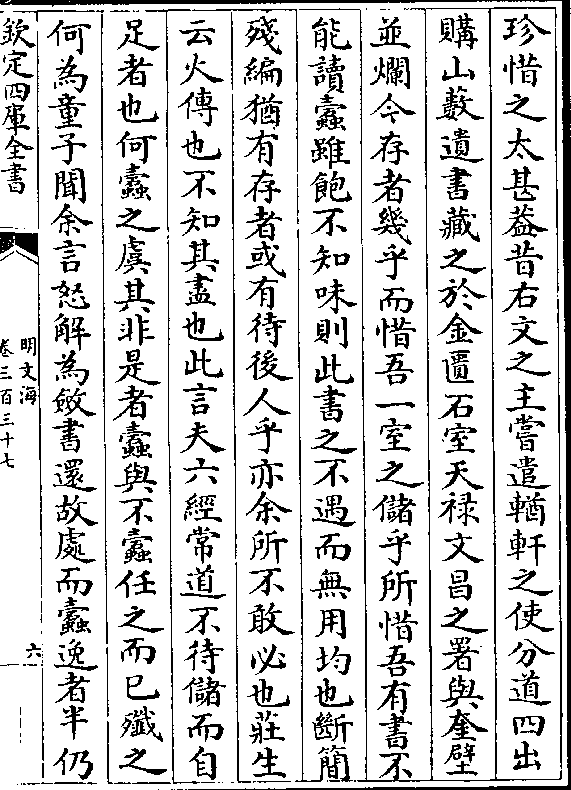 珍惜之太甚葢昔右文之主嘗遣輶軒之使分道四出
購山藪遺書藏之於金匱石室天禄文昌之署與奎壁
並爛今存者幾乎而惜吾一室之儲乎所惜吾有書不
能讀蠧雖飽不知味則此書之不遇而無用均也斷簡
殘編猶有存者或有待後人乎亦余所不敢必也莊生
云火傳也不知其盡也此言夫六經常道不待儲而自
足者也何蠧之虞其非是者蠧與不蠧任之而已殲之
何為童子聞余言怒解為斂書還故處而蠧逸者半仍
欽定四庫全書
明文海
卷三百三十七
六